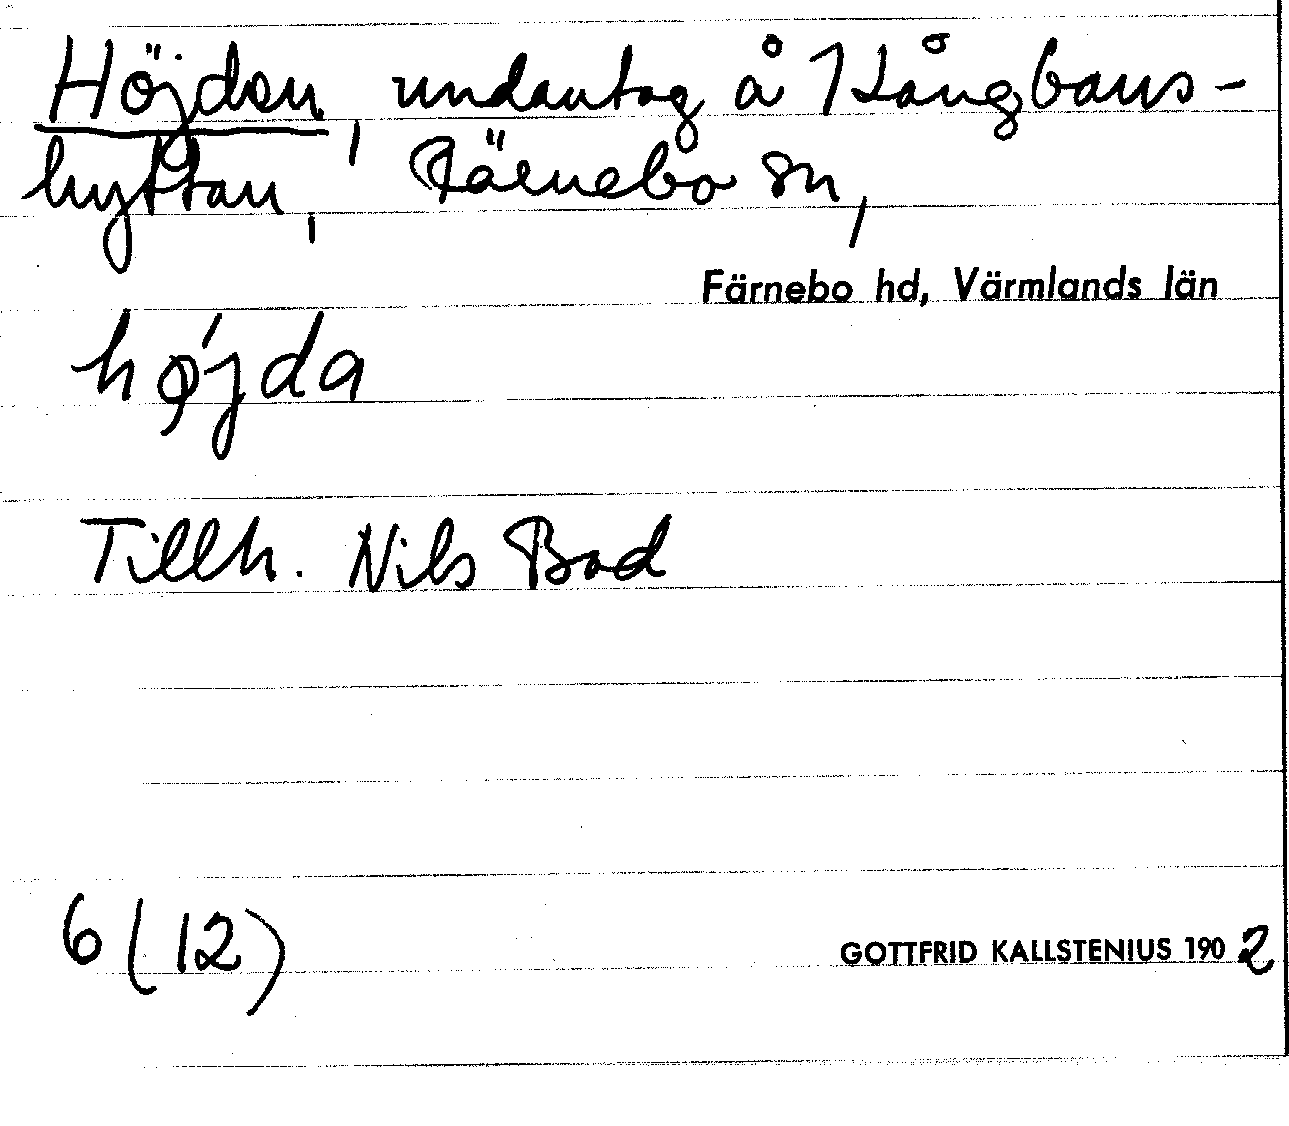 Höjden, undantag å Hångbans-
hyttan, Färnebo sn,
Färnebo hd, Värmlands län
hǿjda
Tillh. Nils Bad
6 (12)
GOTTFRID KALLSTENIUS 1902